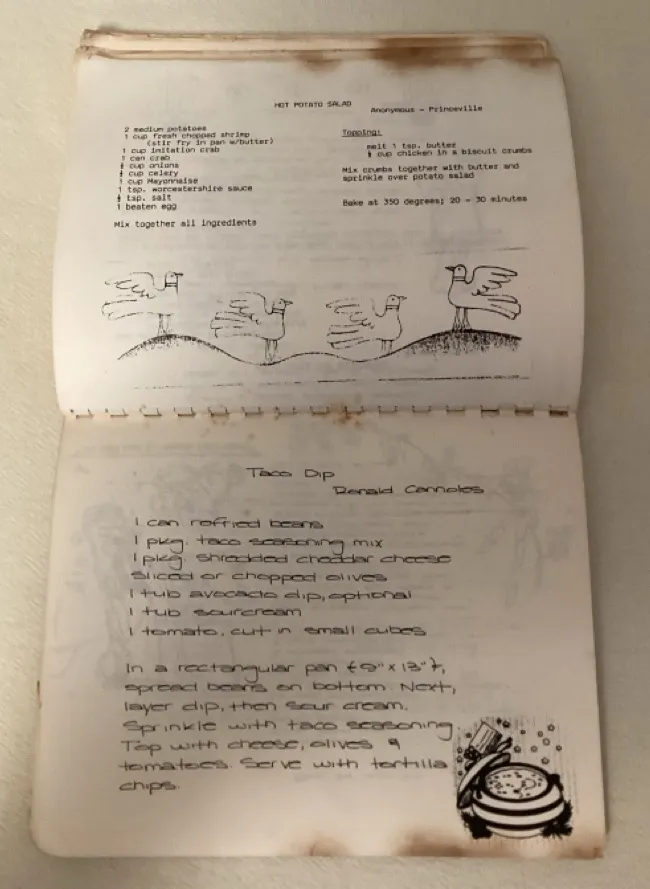 HOT POTATO SALAD
Anonymous - Princeville
2 medium potatoes
1 cup fresh chopped shrimp
(stir fry in pan w/butter)
1 cup imitation crab
1 can crab
cup onions
cup celery
1 cup Mayonnaise
1 tsp. worcestershire sauce
tsp. salt
1 beaten egg
Mix together all ingredients
Topping:
melt 1 tsp. butter
cup chicken in a biscuit crumbs
Mix crumbs together with butter and
sprinkle over potato salad
Bake at 350 degrees; 20 - 30 minutes
Taco Dip
Ronald Cannoles
1 can refried beans
1 pkg. taco seasoning mix
1 pkg. shredded cheddar cheese
sliced or chopped olives
1 tub avocado dip, optional
1 tub sourcream
1 tomato, cut in small cubes
In a rectangular pan (9" x 13"),
spread beans on bottom. Next,
layer dip, then sour cream.
Sprinkle with taco seasoning.
Top with cheese, olives &
tomatoes. Serve with tortilla
chips.